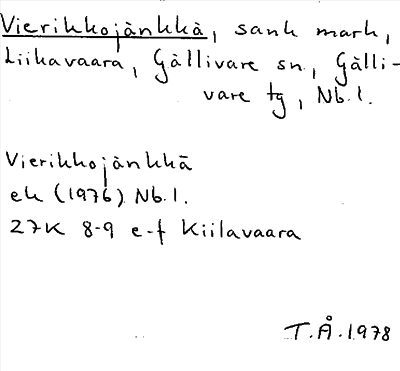 Vierikkojänkkä, sank mark,
Liikavaara, Gällivare sn, Gälli-
vare tg, Nb. l.
Vierikkojänkkä
ek (1976) Nb. l.
27K 8-9 e-f Kiilavaara
T.Å. 1978